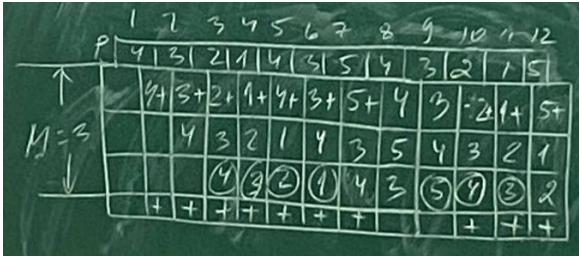 1 2 3 4 5 6 7 8 9 10 11 12
P 4 3 2 1 4 3 5 4 3 2 1 5
4+ 3+ 2+ 1+ 4+ 3+ 5+ 4 3 2+ 1+ 5+
M=3 4 3 2 1 4 3 5 4 3 2 1
4 3 2 1 4 3 5 4 3 2
+ + + + + + + + + +